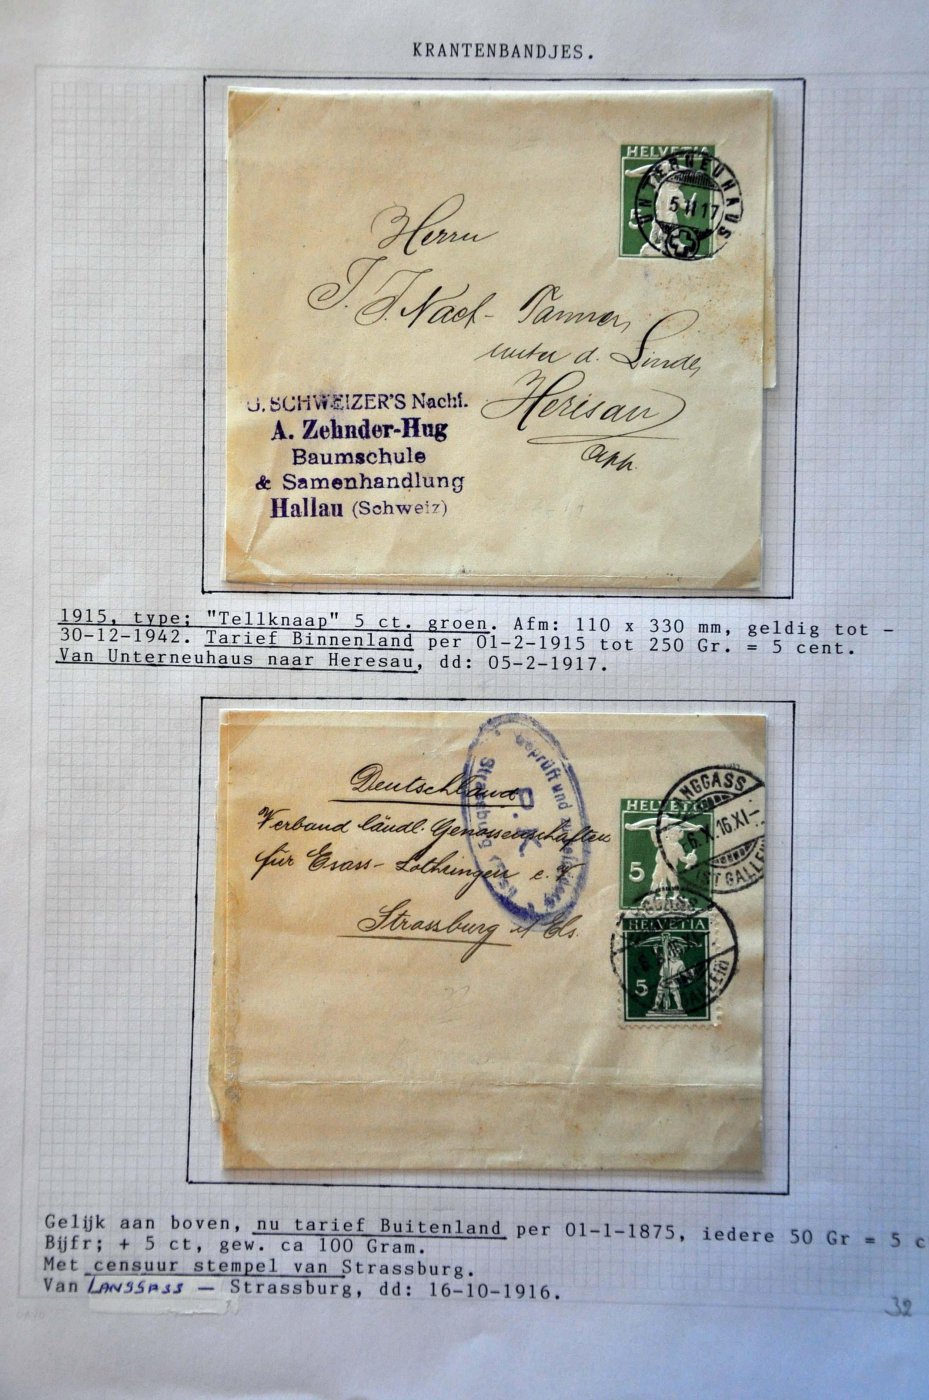 KRANTENBANDJES.
HELVETIA
UNTERNEUHAUS
5 II 17
Herrn
J. J. Naef- Tanner,
unter d. Linde,
Herisau
App.
G. SCHWEIZER'S Nachf.
A. Zehnder-Hug
Baumschule
& Samenhandlung
Hallau (Schweiz)
1915, type; "Tellknaap" 5 ct. groen. Afm: 110 x 330 mm, geldig tot -
30-12-1942. Tarief Binnenland per 01-2-1915 tot 250 Gr. = 5 cent.
Van Unterneuhaus naar Heresau, dd: 05-2-1917.
Geprüft und
D. K.
Strassburg (Els)
Deutschland
Verband ländl. Genossenschaften
für Esass-Lothringen e. V.
Strassburg i/ Els.
HELVETIA
5
NGGASS
6.X.16.XI-
(ST GALLEN)
HELVETIA
5
Gelijk aan boven, nu tarief Buitenland per 01-1-1875, iedere 50 Gr = 5 c
Bijfr; + 5 ct, gew. ca 100 Gram.
Met censuur stempel van Strassburg.
Van LANGGASS - Strassburg, dd: 16-10-1916.
32